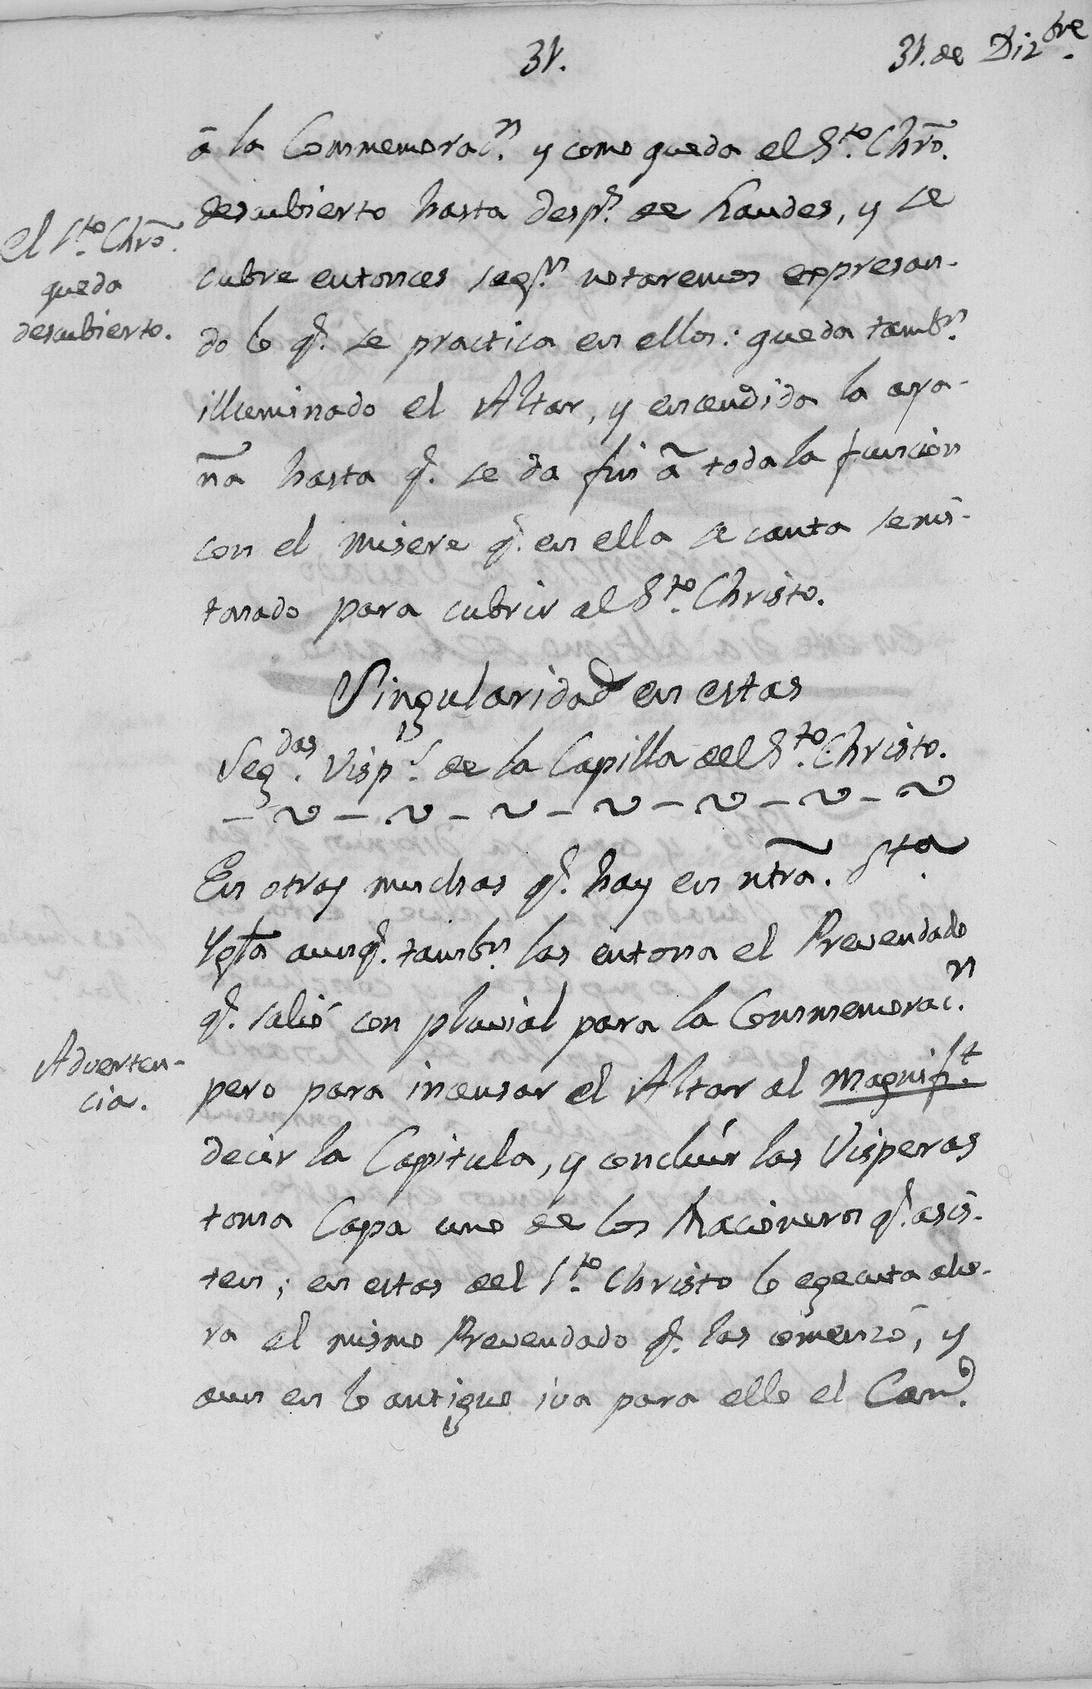 31.
31. de Diz.bre
â la Commemorac.n y como queda el S.to Chrõ.
descubierto hasta desp.s de Laudes, y se
El S.to Chrõ.
queda
descubierto.
cubre entonces seg.n notaremos expresan-
do lo q.e se practica en ellos: queda tamb.n
illuminado el Altar, y encendida la ara-
ña hasta q.e se da fin â toda la funcion
con el misere q.e en ella se canta semi-
tonado para cubrir al S.to Christo.
Singularidad en estas
Seg.das Visp.s de la Capilla del S.to Christo.
En otras muchas q.e hay en ntrã. S.ta
Yglã aunq.e tamb.n las entona el Prevendado
q.e salió con pluvial para la Commemorac.n
Adverten-
cia.
pero para incensar el Altar al Magnif.t
decir la Capitula, y concluír las Visperas
toma Capa uno de los Racioneros q.e asis-
ten; en estas del S.to Christo lo egecuta aho-
ra el mismo Prevendado q.e las comenzó, y
aun en lo antiguo iva para ello el Can.o